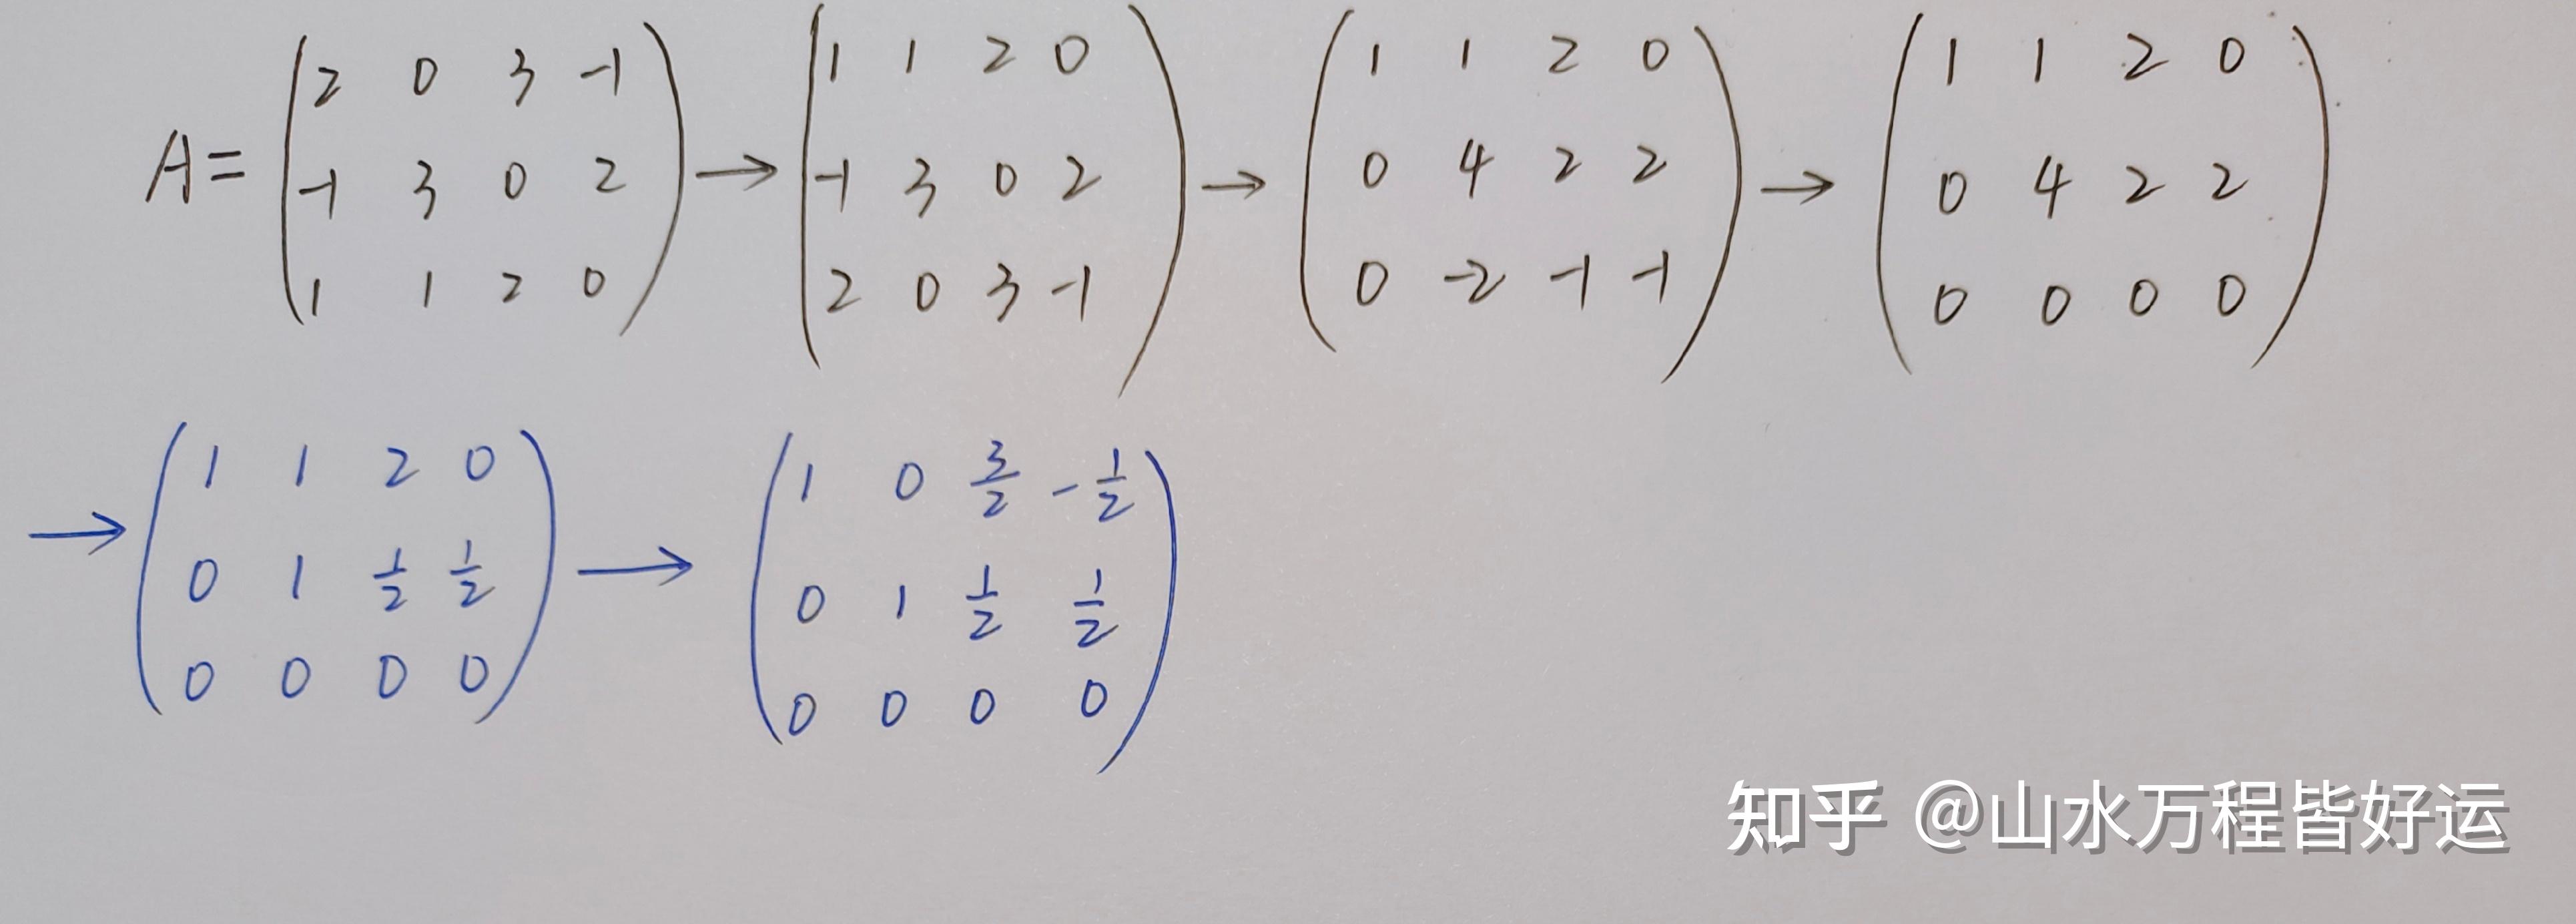 A = (2 0 3 -1; -1 3 0 2; 1 1 2 0) → (1 1 2 0; -1 3 0 2; 2 0 3 -1) → (1 1 2 0; 0 4 2 2; 0 -2 -1 -1) → (1 1 2 0; 0 4 2 2; 0 0 0 0)
→ (1 1 2 0; 0 1 1/2 1/2; 0 0 0 0) → (1 0 3/2 -1/2; 0 1 1/2 1/2; 0 0 0 0)
知乎 @山水万程皆好运